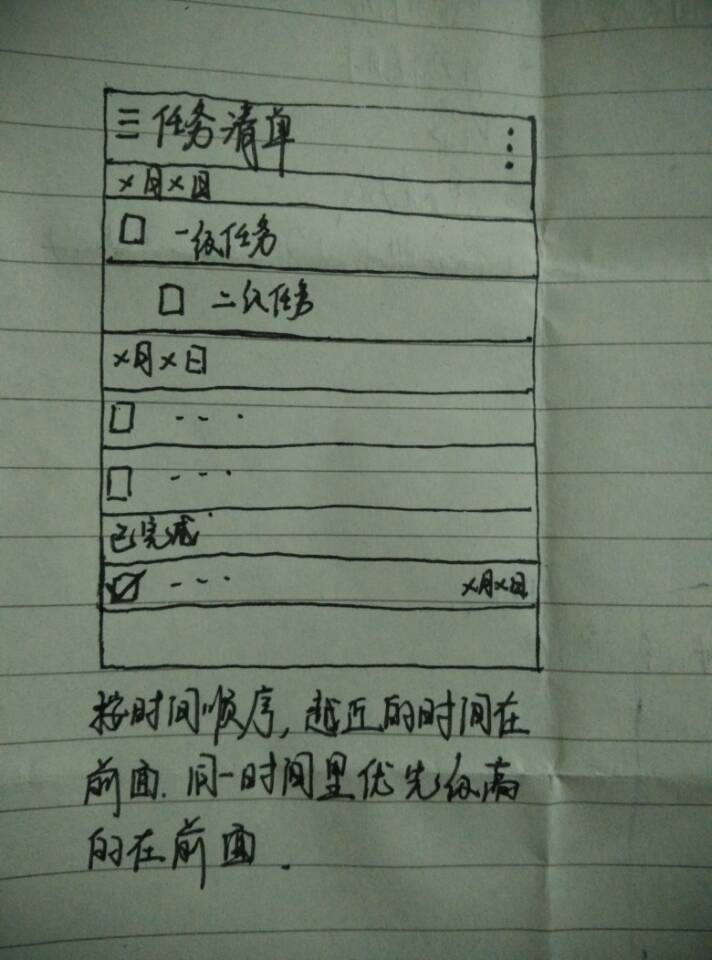 三任务清单 ⋮
×月×日
一级任务
二级任务
×月×日
---
---
已完成
--- ×月×日
按时间顺序,越近的时间在
前面.同一时间里优先级高
的在前面.